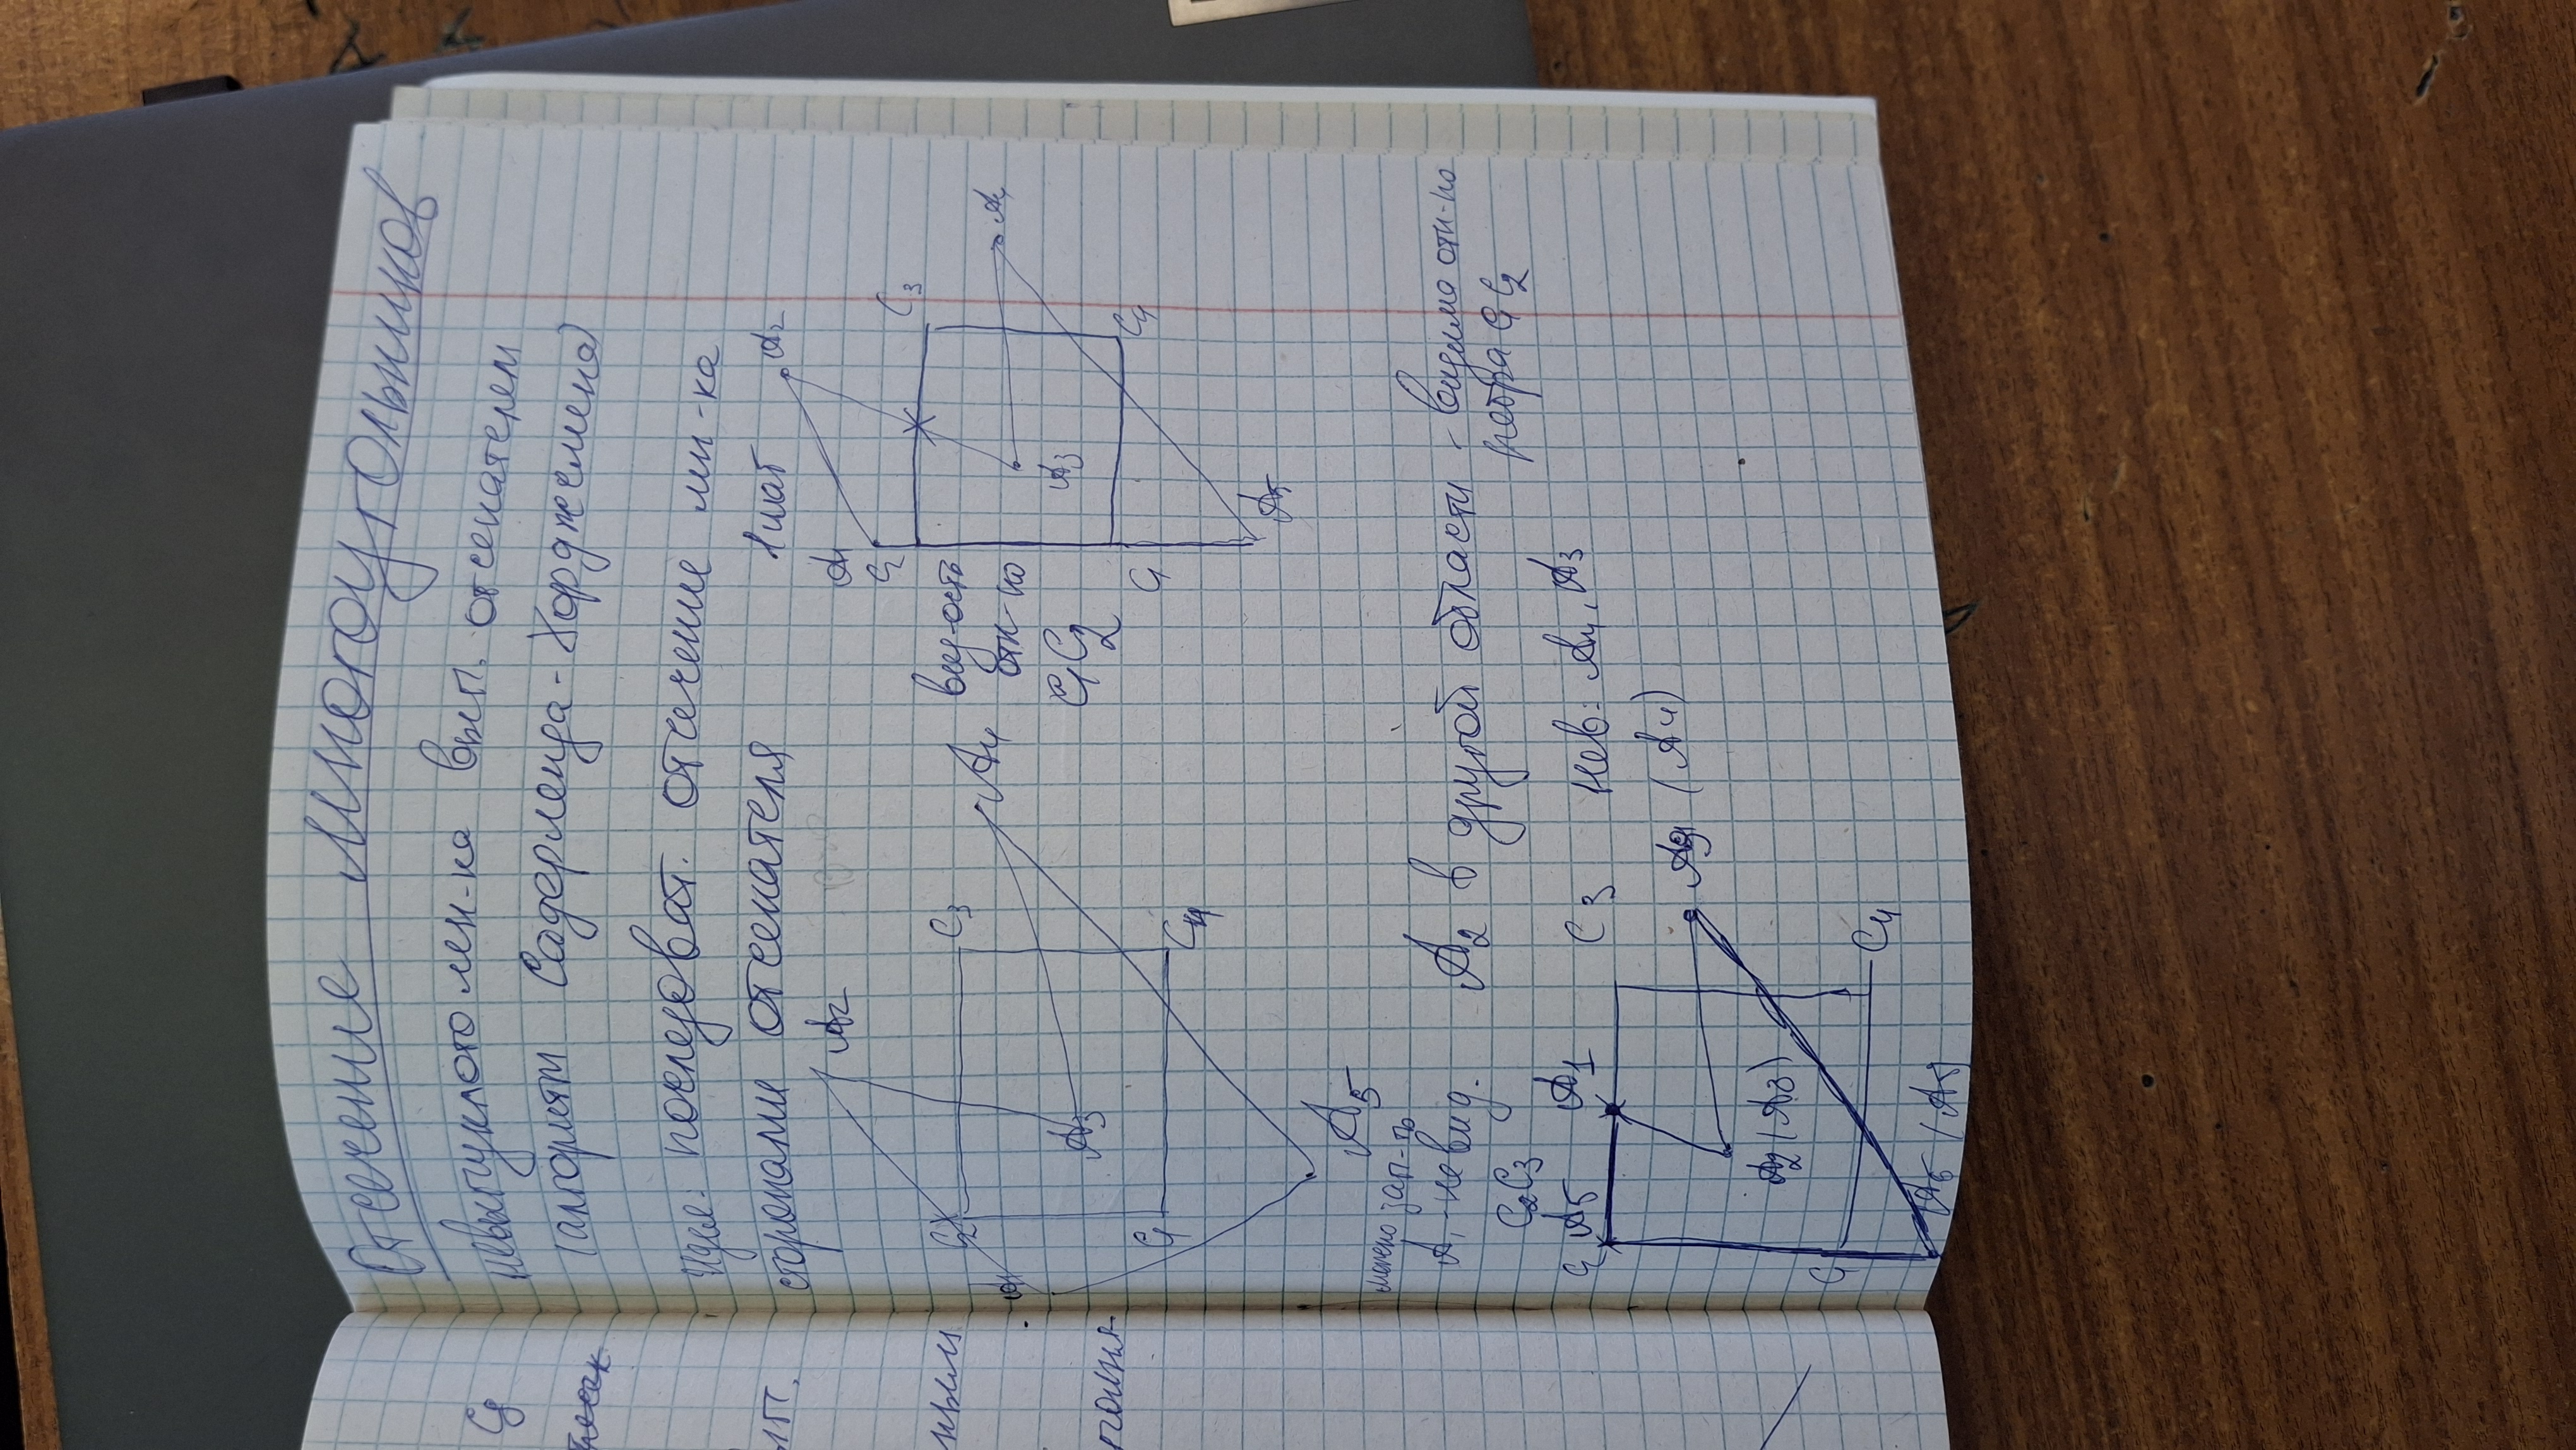 Отсечение многоугольников
невыпуклого мн-ка вып. отсекателем
(алгоритм Садерленда-Ходжмена)
Идея: последоват. отсечение мн-ка
сторонами отсекателя
1 шаг
A2
A2
A1
C2
C3
C2
C3
вид-ость
A4
A1
отн-но
A4
A3
A3
C1C2
C1
C4
C1
C4
A5
A5
можно зап-ть
A1 - невид.
A2 в другой области - видима отн-но
ребра C1C2
C2C3
C2 A5 A1 C3
нев: A4, A3
A3 (A4)
A2 (A3)
C1
C4
A6 (A5)
ным